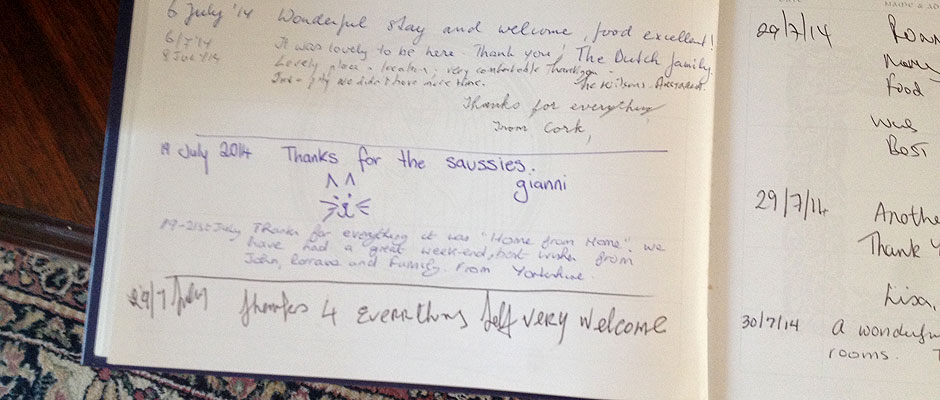 6 July '14 Wonderful stay and welcome, food excellent!
6/7 '14 It was lovely to be here. Thank you! The Dutch family.
8 July '14 Lovely place + location, very comfortable
we didn't have more time. The Wilsons
Thanks for everything,
From Cork,
19 July 2014 Thanks for the saussies.
gianni
19-21st July Thanks for everything it was "Home from Home". We
have had a great week-end, best wishes from
John, Lorraine and Family. From Yorkshire.
29/7 July thanks 4 everything felt very welcome
29/7/14
Food
Was
29/7/14 Anothe
Thank
Lisa,
30/7/14 a wonderfu
rooms.